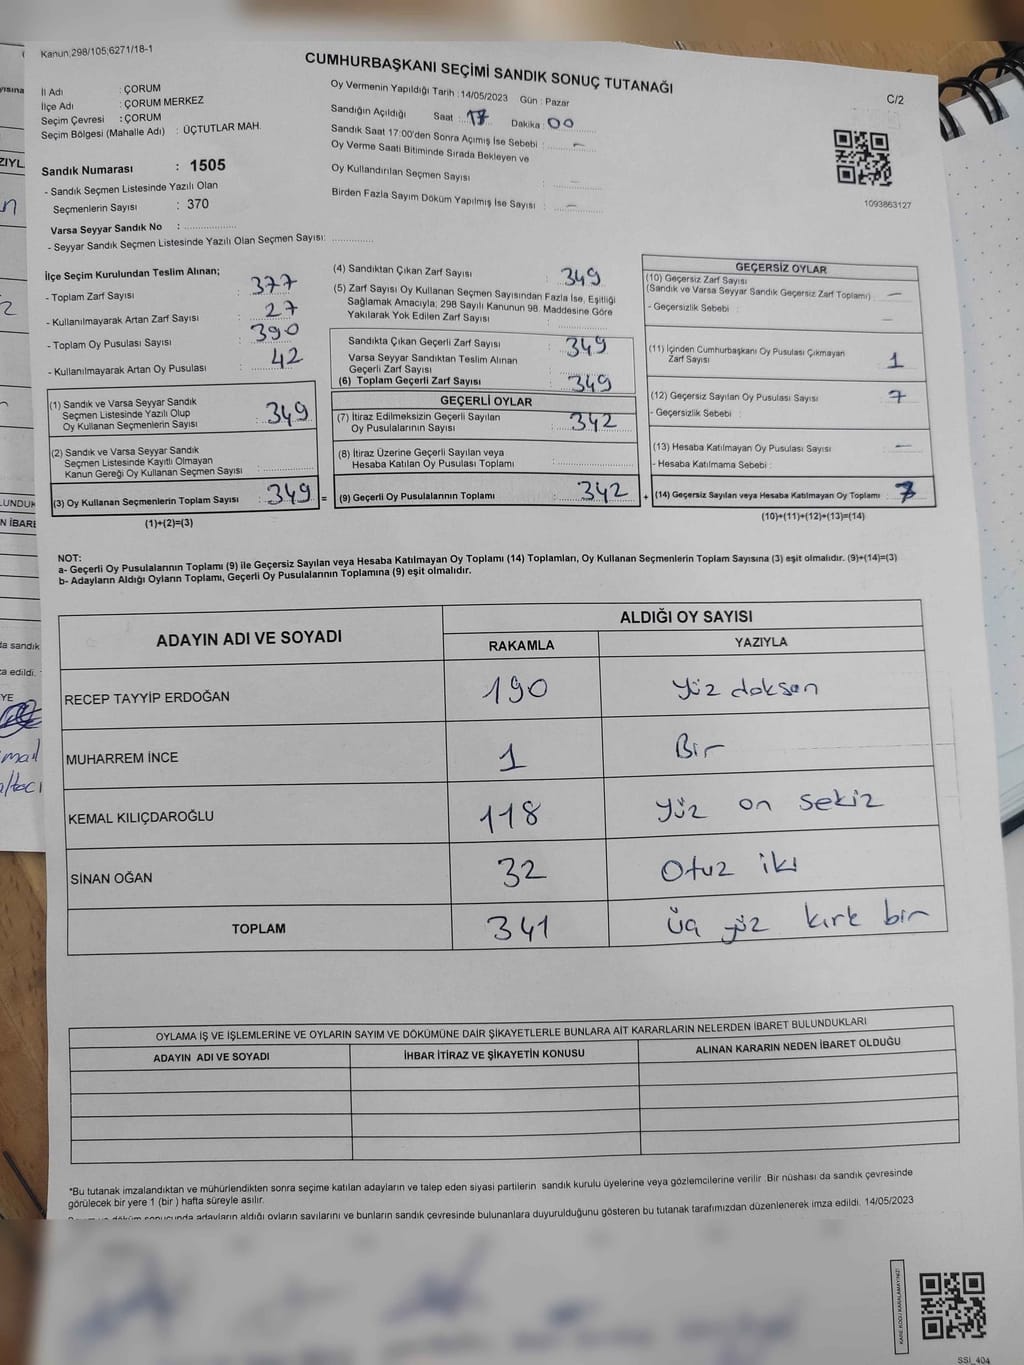 Kanun;298/105;6271/18-1
CUMHURBAŞKANI SEÇİMİ SANDIK SONUÇ TUTANAĞI
C/2
İl Adı : ÇORUM
İlçe Adı : ÇORUM MERKEZ
Seçim Çevresi : ÇORUM
Seçim Bölgesi (Mahalle Adı) : ÜÇTUTLAR MAH.
Sandık Numarası : 1505
- Sandık Seçmen Listesinde Yazılı Olan
Seçmenlerin Sayısı : 370
Varsa Seyyar Sandık No :
- Seyyar Sandık Seçmen Listesinde Yazılı Olan Seçmen Sayısı:
Oy Vermenin Yapıldığı Tarih : 14/05/2023 Gün : Pazar
Sandığın Açıldığı Saat : 17 Dakika : 00
Sandık Saat 17:00'den Sonra Açımış İse Sebebi : —
Oy Verme Saati Bitiminde Sırada Bekleyen ve
Oy Kullandırılan Seçmen Sayısı : —
Birden Fazla Sayım Döküm Yapılmış İse Sayısı : —
1093863127
İlçe Seçim Kurulundan Teslim Alınan;
- Toplam Zarf Sayısı : 377
- Kullanılmayarak Artan Zarf Sayısı : 27
- Toplam Oy Pusulası Sayısı : 390
- Kullanılmayarak Artan Oy Pusulası : 42
(1) Sandık ve Varsa Seyyar Sandık
Seçmen Listesinde Yazılı Olup
Oy Kullanan Seçmenlerin Sayısı : 349
(2) Sandık ve Varsa Seyyar Sandık
Seçmen Listesinde Kayıtlı Olmayan
Kanun Gereği Oy Kullanan Seçmen Sayısı :
(3) Oy Kullanan Seçmenlerin Toplam Sayısı : 349 =
(1)+(2)=(3)
(4) Sandıktan Çıkan Zarf Sayısı : 349
(5) Zarf Sayısı Oy Kullanan Seçmen Sayısından Fazla İse, Eşitliği
Sağlamak Amacıyla; 298 Sayılı Kanunun 98. Maddesine Göre
Yakılarak Yok Edilen Zarf Sayısı :
Sandıkta Çıkan Geçerli Zarf Sayısı : 349
Varsa Seyyar Sandıktan Teslim Alınan
Geçerli Zarf Sayısı :
(6) Toplam Geçerli Zarf Sayısı : 349
GEÇERLİ OYLAR
(7) İtiraz Edilmeksizin Geçerli Sayılan
Oy Pusulalarının Sayısı : 342
(8) İtiraz Üzerine Geçerli Sayılan veya
Hesaba Katılan Oy Pusulası Toplamı :
(9) Geçerli Oy Pusulalarının Toplamı : 342 +
GEÇERSİZ OYLAR
(10) Geçersiz Zarf Sayısı
(Sandık ve Varsa Seyyar Sandık Geçersiz Zarf Toplamı) : —
- Geçersizlik Sebebi : —
(11) İçinden Cumhurbaşkanı Oy Pusulası Çıkmayan
Zarf Sayısı : 1
(12) Geçersiz Sayılan Oy Pusulası Sayısı : 7
- Geçersizlik Sebebi :
(13) Hesaba Katılmayan Oy Pusulası Sayısı : —
- Hesaba Katılmama Sebebi :
(14) Geçersiz Sayılan veya Hesaba Katılmayan Oy Toplamı :
(10)+(11)+(12)+(13)=(14)
NOT:
a- Geçerli Oy Pusulalarının Toplamı (9) ile Geçersiz Sayılan veya Hesaba Katılmayan Oy Toplamı (14) Toplamları, Oy Kullanan Seçmenlerin Toplam Sayısına (3) eşit olmalıdır. (9)+(14)=(3)
b- Adayların Aldığı Oyların Toplamı, Geçerli Oy Pusulalarının Toplamına (9) eşit olmalıdır.
ADAYIN ADI VE SOYADI ALDIĞI OY SAYISI
RAKAMLA YAZIYLA
RECEP TAYYİP ERDOĞAN 190 yüz doksan
MUHARREM İNCE 1 Bir
KEMAL KILIÇDAROĞLU 118 yüz on sekiz
SİNAN OĞAN 32 Otuz iki
TOPLAM 341 üç yüz kırk bir
OYLAMA İŞ VE İŞLEMLERİNE VE OYLARIN SAYIM VE DÖKÜMÜNE DAİR ŞİKAYETLERLE BUNLARA AİT KARARLARIN NELERDEN İBARET BULUNDUKLARI
ADAYIN ADI VE SOYADI İHBAR İTİRAZ VE ŞİKAYETİN KONUSU ALINAN KARARIN NEDEN İBARET OLDUĞU
*Bu tutanak imzalandıktan ve mühürlendikten sonra seçime katılan adayların ve talep eden siyasi partilerin sandık kurulu üyelerine veya gözlemcilerine verilir. Bir nüshası da sandık çevresinde
görülecek bir yere 1 (bir) hafta süreyle asılır.
döküm sonucunda adayların aldığı oyların sayılarını ve bunların sandık çevresinde bulunanlara duyurulduğunu gösteren bu tutanak tarafımızdan düzenlenerek imza edildi. 14/05/2023
KARE KODU KARALAMAYINIZ!
SSI_404